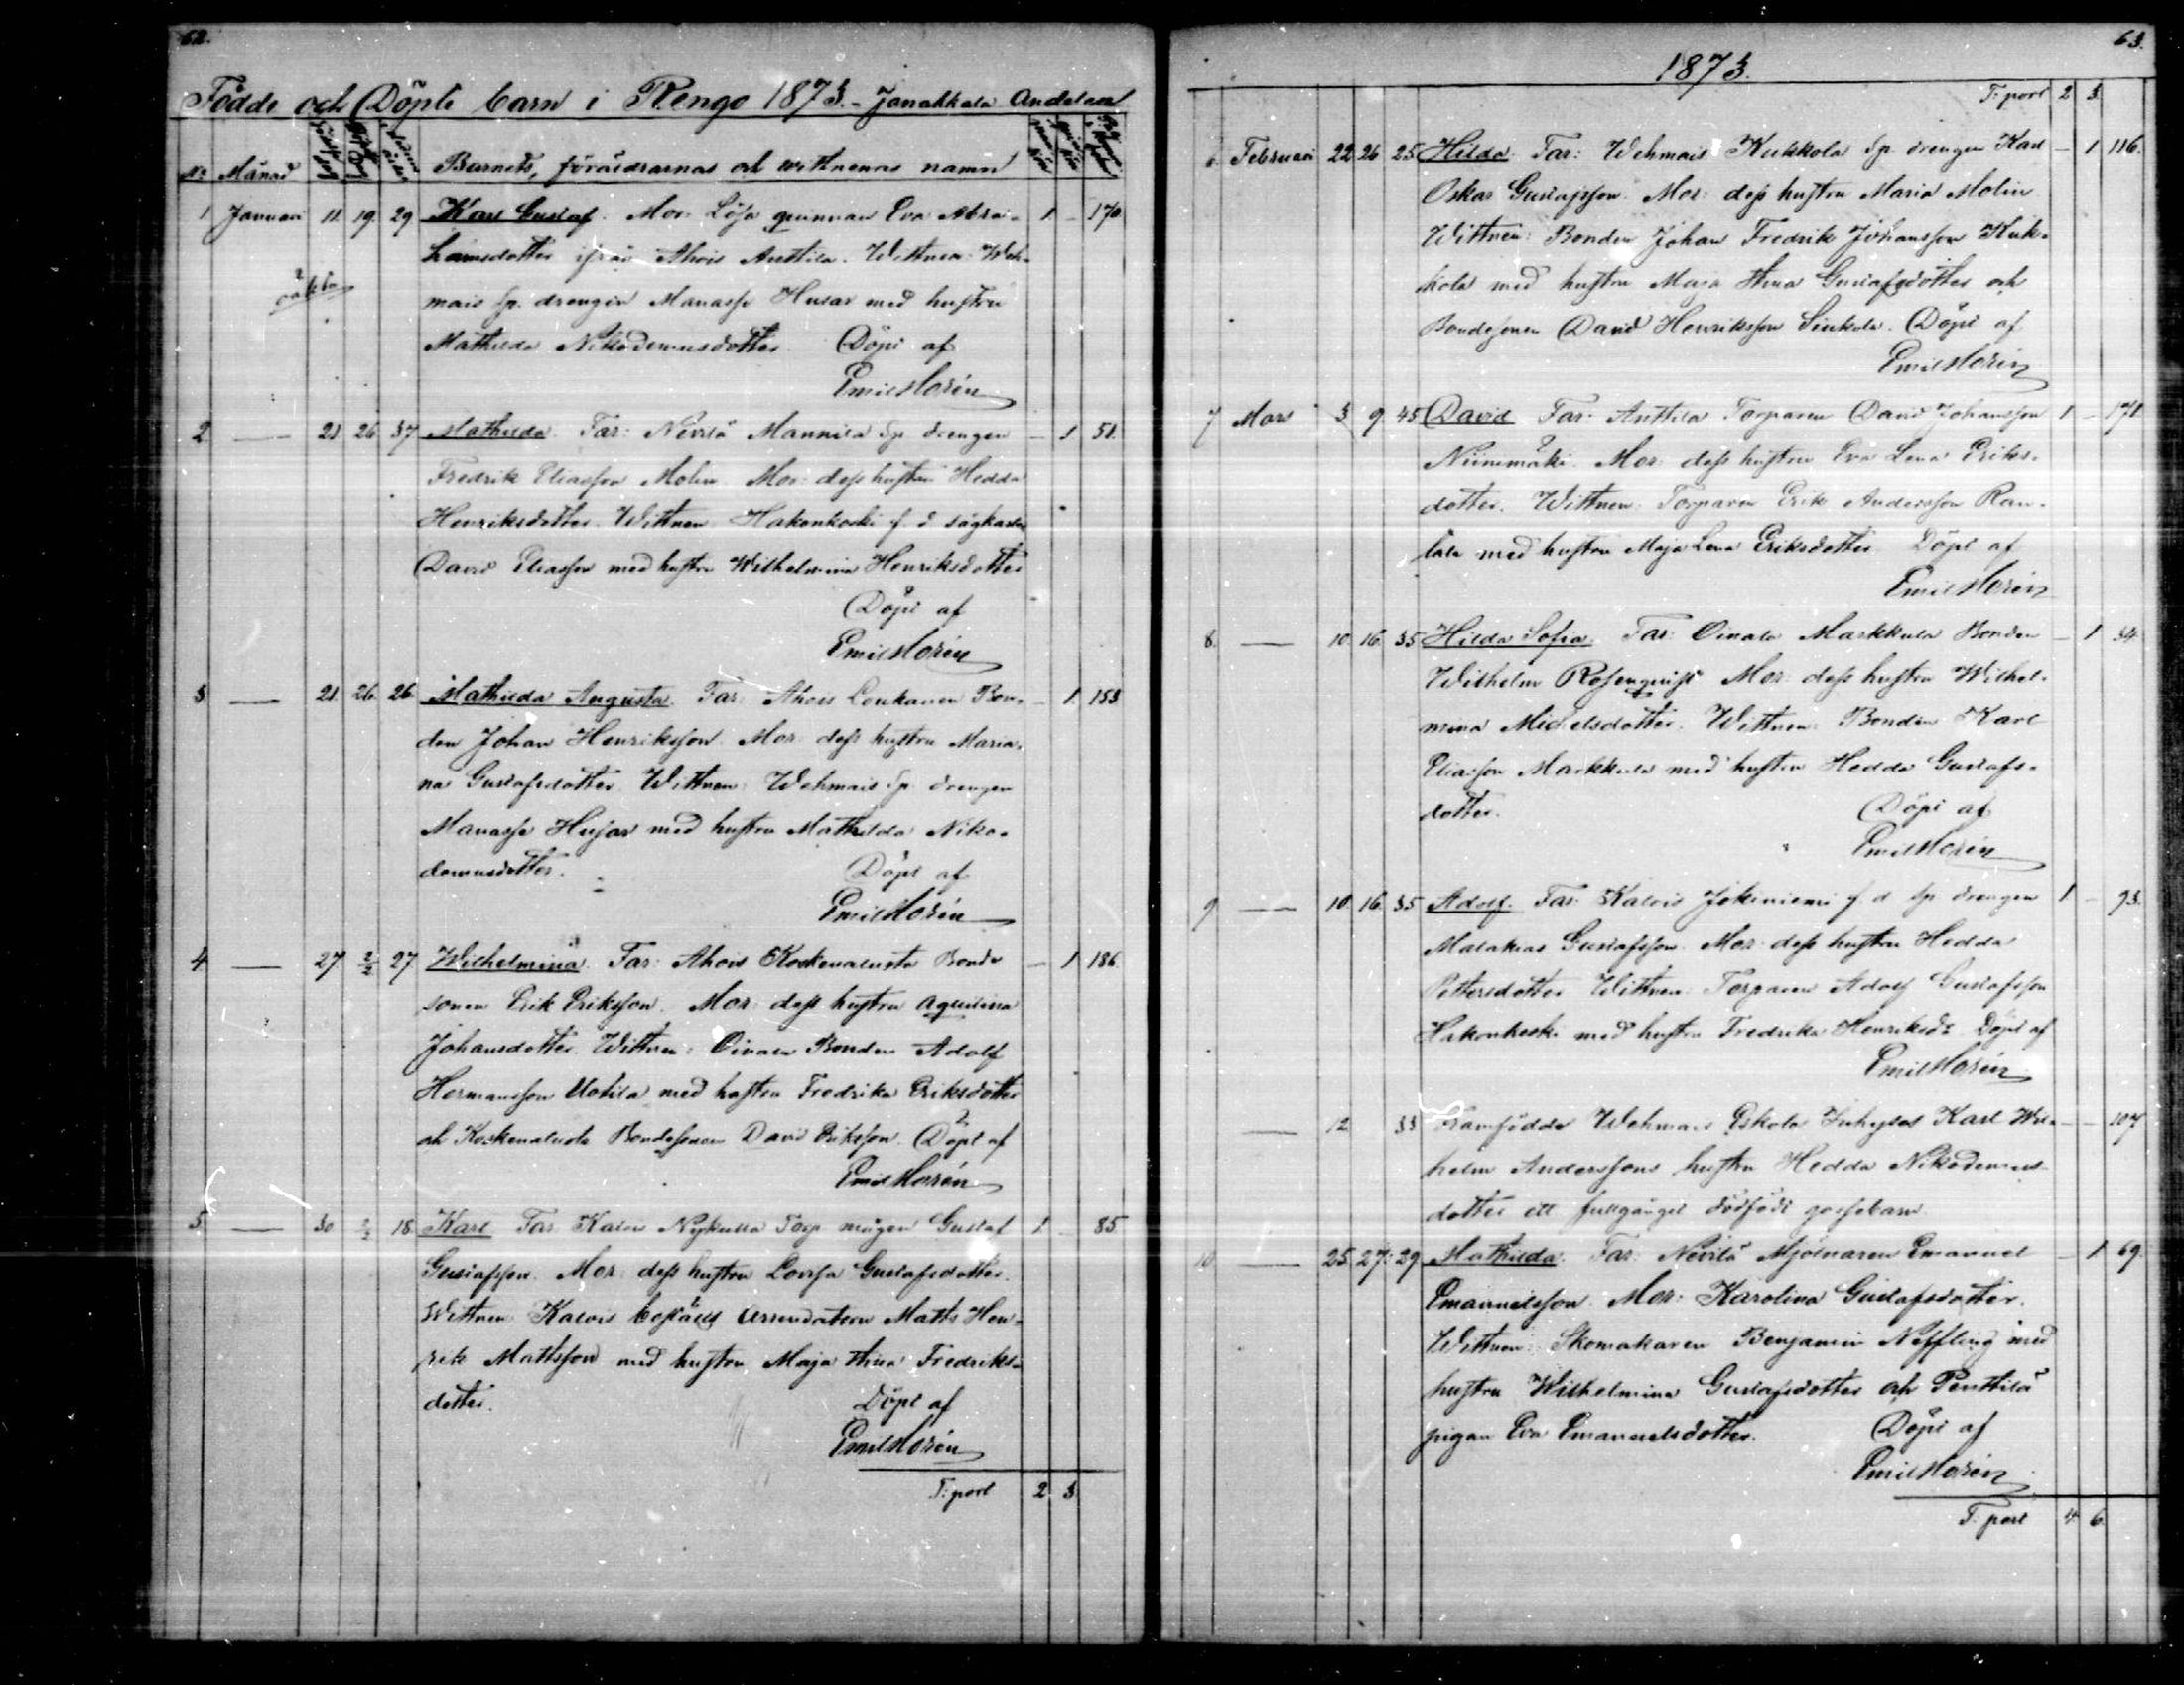 62.
Födde och Döpte barn i Rengo 1873. - Janakkala Andelen
No Månad Barnets, föräldrarnas och wittnenas namn
1 Januari 11. 19. 29 Karl Gustaf. Mor: Lösa qvinnan Eva Abra- 1. - 170
hamsdotter ifrån Ahois Anttila. Wittnen: Weh-
oäkta
mais sp. drengen Manasse Husar med hustru
Mathilda Nikodemusdotter. Döpt af
Emil Horén
2 — 21 26 37 Mathilda. Far: Nevilä Mannila sp drengen - 1 51.
Fredrik Eliasson Molin. Mor: dess hustru Hedda
Henriksdotter. Wittnen: Hakonkoski f. d sågkarlen
David Eliasson med hustru Wilhelmina Henriksdotter
Döpt af
Emil Horén
3 — 21. 26. 26 Mathilda Augusta. Far: Ahois Loukanen Bon- - 1. 153
den Johan Henriksson. Mor: dess hustru Maria-
na Gustafsdotter. Wittnen: Wehmais sp. drengen
Manasse Husar med hustru Mathilda Niko-
demusdotter. Döpt af
Emil Horén
4 — 27 2/2 27 Wilhelmina. Far: Ahois Koskenalusta Bonde - 1 186.
sonen Erik Eriksson. Mor: dess hustru Aqvilina
Johansdotter. Wittnen: Oinala Bonden Adolf
Hermansson Uotila med hustru Fredrika Eriksdotter
och Koskenalusta Bondesonen David Eriksson. Döpt af
Emil Horén
5 — 30 18. Karl Far: Kalois Nykulla Torp mågen Gustaf 1 - 85
Gustafsson. Mor: dess hustru Lovisa Gustafsdotter.
Wittnen: Kalois boställs Arrendatorn Matts Hen-
rik Mattsson med hustru Maja Stina Fredriks-
dotter. Döpt af
Emil Horén
T: port 2. 3
63.
1873.
T: port 2 3.
6. Februari 22 26 25 Hilda. Far: Wehmais Kukkola sp. drengen Karl - 1 116.
Oskar Gustafsson. Mor: dess hustru Maria Molin
Wittnen: Bonden Johan Fredrik Johansson Kuk-
kola med hustru Maja Stina Gustafsdotter och
Bondesonen David Henriksson Sinkola. Döpt af
Emil Horén
7 Mars 3 9. 45 David Far: Anttila Torparen David Johansson 1 - 171
Niinimäki. Mor: dess hustru Eva Lena Eriks-
dotter. Wittnen: Torparen Erik Andersson Ran-
tala med hustru Maja Lena Eriksdotter Döpt af
Emil Horén
8. — 10. 16. 35 Hilda Sofia. Far: Oinala Markkula Bonden - 1 34
Wilhelm Rosenqvist Mor: dess hustru Wilhel-
mina Michelsdotter. Wittnen: Bonden Karl
Eliasson Markkula med hustru Hedda Gustafs-
dotter. Döpt af
Emil Horén
9 — 10. 16. 35 Adolf. Far: Kalois Jokiniemi f. d sp drengen 1 - 93.
Malakias Gustafsson. Mor: dess hustru Hedda
Pettersdotter Wittnen: Torparen Adolf Gustafsson
Hakonkoski med hustru Fredrika Henriksdr Döpt af
Emil Horén
— 12. 33 Framfödde Wehmais Eskola Inhyses Karl Wil- - - 107
helm Anderssons hustru Hedda Nikodemus-
dotter ett fullgånget dödfödt gossebarn.
10 — 25. 27. 29 Mathilda. Far: Nevilä Mjölnaren Emanuel - 1 69.
Emanuelsson. Mor: Karolina Gustafsdotter.
Wittnen: Skomakaren Benjamin Neffling med
hustru Wilhelmina Gustafsdotter och Penttilä
pigan Eva Emanuelsdotter. Döpt af
Emil Horén
T. port 4. 6.